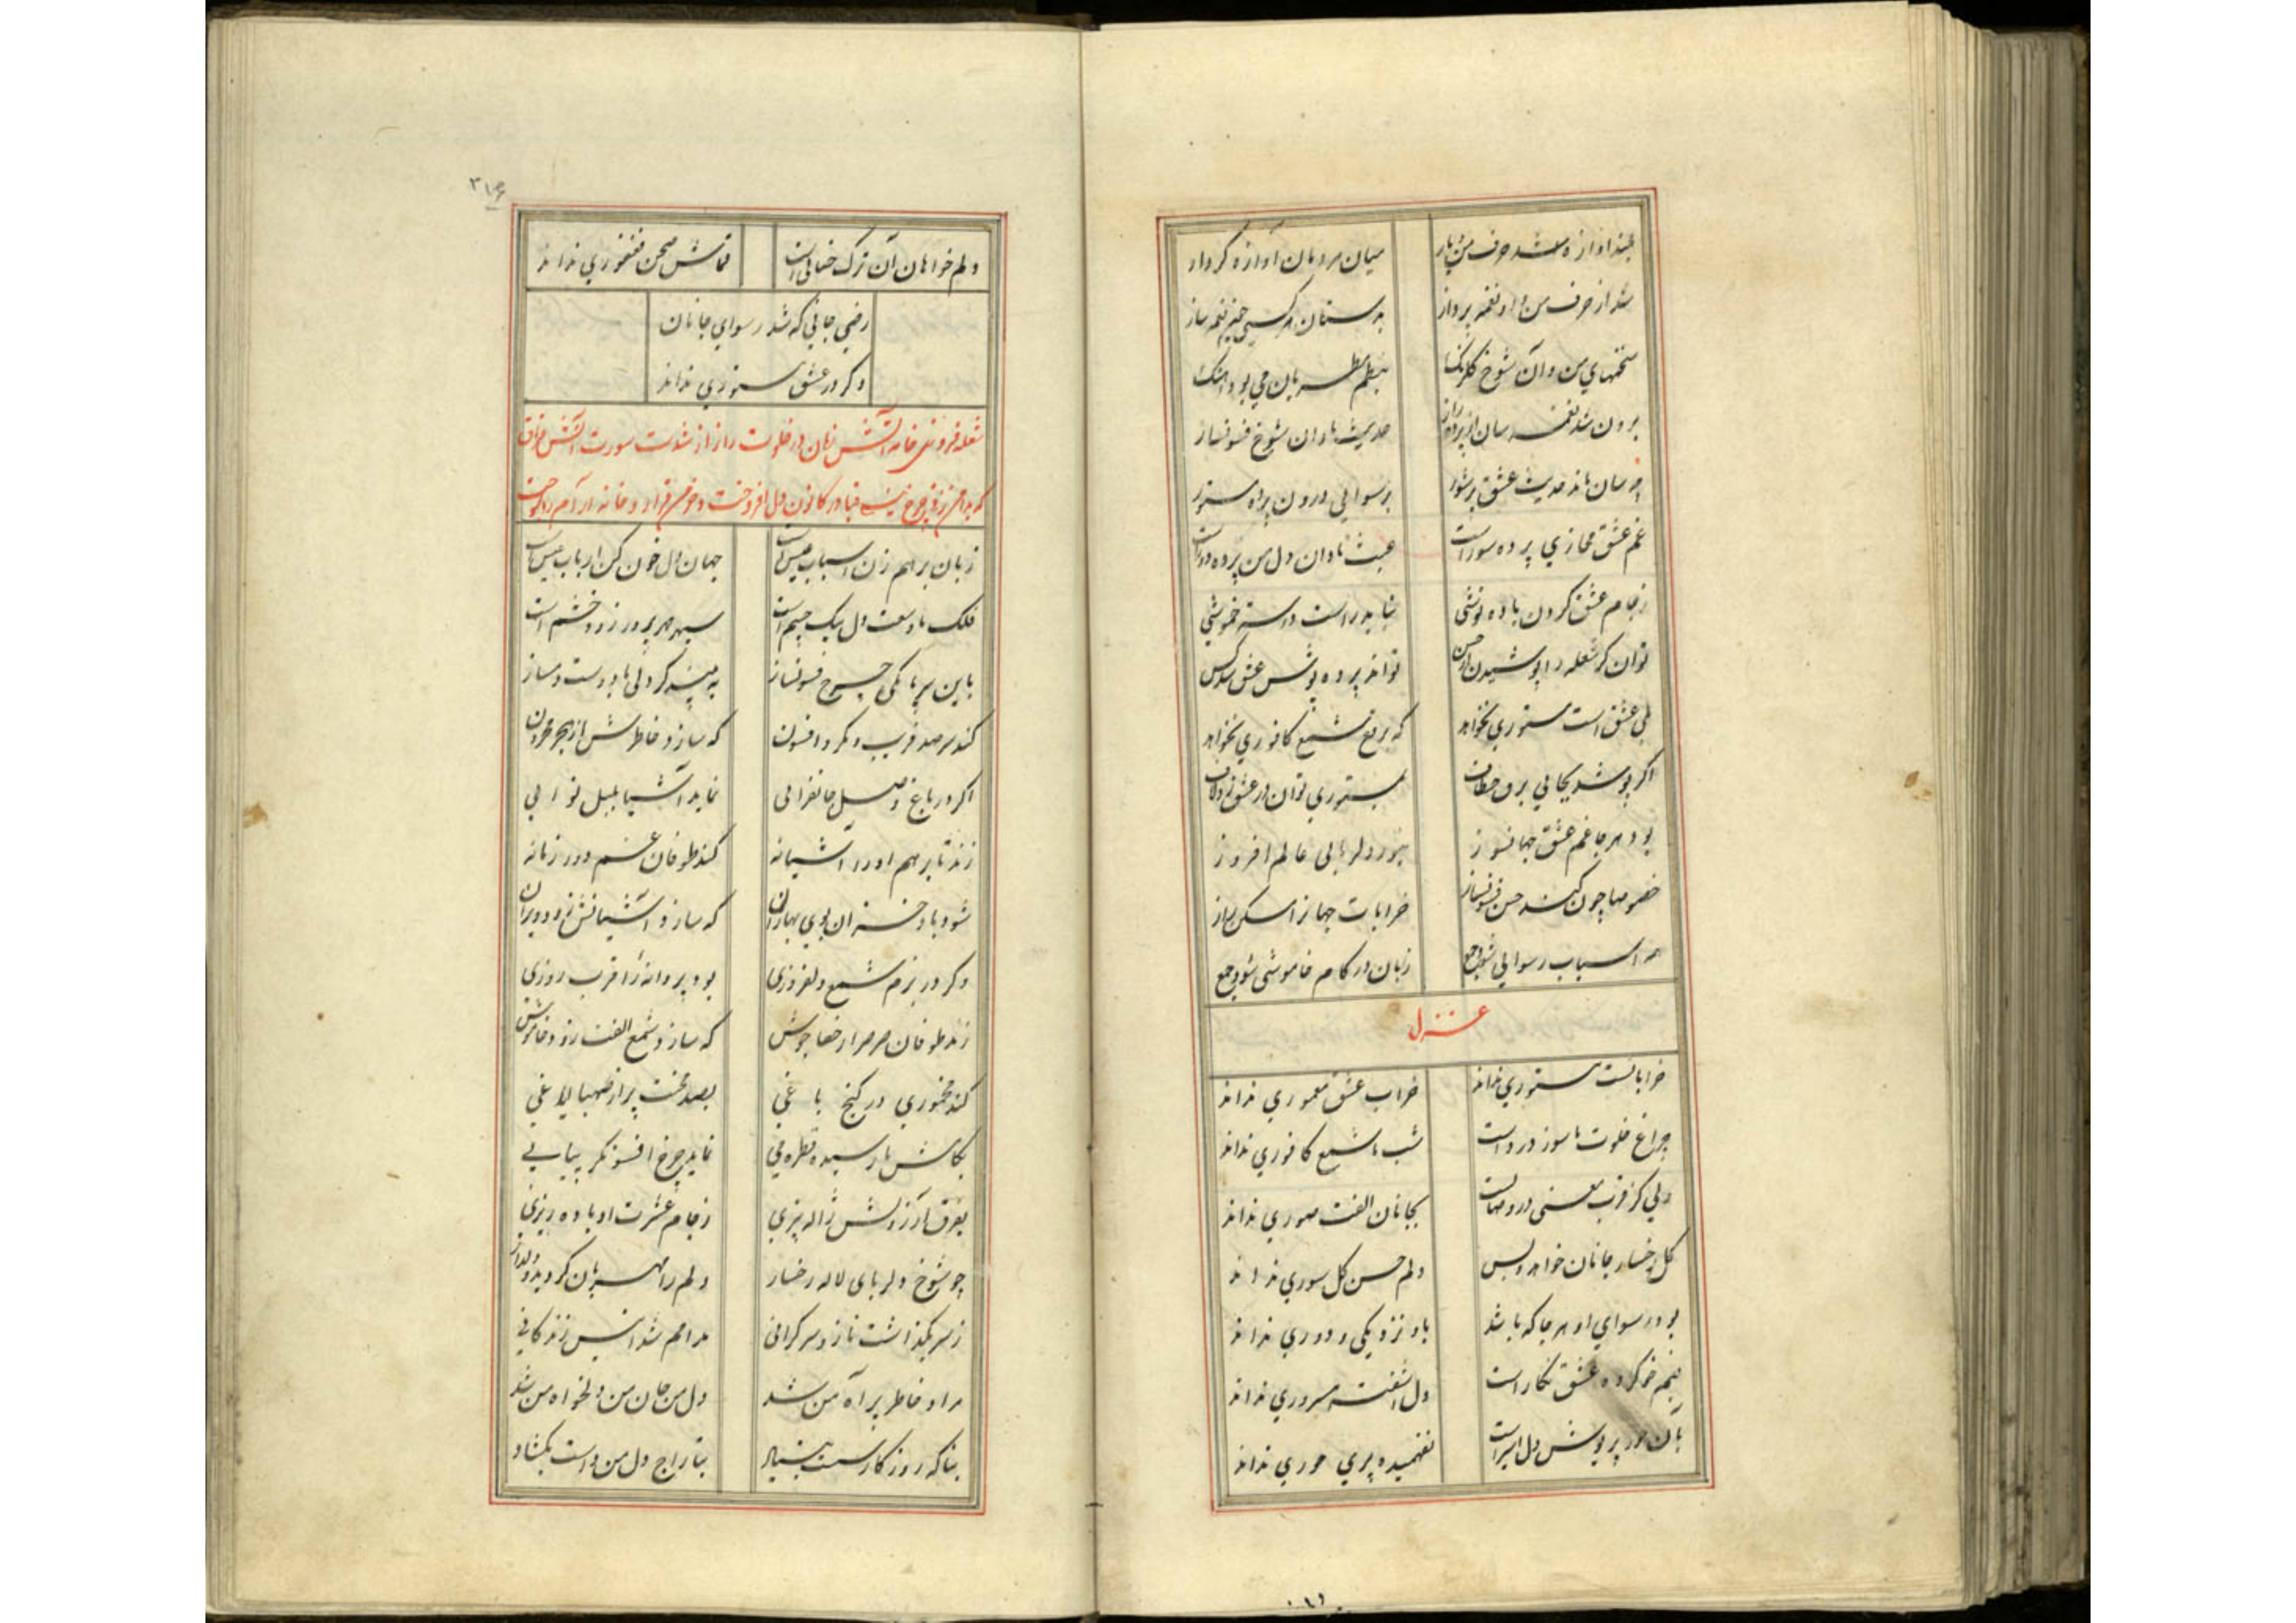 بلند آوازه شد حرف من و یار میان مردمان آوازه کردار
شد از حرف من و او نغمه پرداز بدستان هر کسی چیز نغمه ساز
سخنهای من و آن شوخ گلرنگ بنظم مطربان می بود آهنگ
برون شد نغمه سان از پرده راز حدیث نادان شوخ فسونساز
چه سان ماند حدیث عشق پرشور برسوایی درون پرده مستور
غم عشق مجازی پرده سوز است عبث نادان دل من پرده دوز است
ز جام عشق کردن باده نوشی نباید راست دانسته خموشی
توان گر شعله را پوشیدن از خس تواند پرده پوش عشق شد کس
بلی عشق است مستوری نخواهد که برقع شمع کافوری نخواهد
اگر پوشد یجایی برق بمستوری توان در عشق زد
بود هر جا غم عشق جهانسوز دلربایی عالم افروز
خصوصا چون کند حسن فسونساز خرابات جهانرا مسکن راز
همه اسباب رسوایی شود جمع زبان در کام خاموشی شود جمع
غزل
خراباتست مستوری نداند خراب عشق معموری نداند
چراغ خلوت ما سوز درد است شب ما شمع کافوری نداند
دلی کز قرب معنی در وصالست بجانان الفت صوری نداند
گل رخسار جانان خواهد و بس دلم حسن گل سوری نداند
بود رسوای او هر جا که باشد باو نزدیکی و دوری نداند
خو کرده عشق نگار است دل آشفته مسروری نداند
بآن حور پریوش دل اسیر است نفهمیده پری حوری نداند
۳۱۶
دلم خواهان آن ترک خطائی است قماش صحن فغفوری نداند
رضی جانی که شد رسوای جانان
دگر در عشق مستوری نداند
شعله فروزی خامه آتش زبان در خلوت راز از شدت سورت آتش فراق
که بدامن زنی چرخ در کانون دل افروخت و خرمن قرار و خانه آرام را سوخت
زبان برهم زن اسباب عیش است جهان دل خون کن ارباب عیش است
فلک با وسعت دل یک چشم است سپهر مهرپرور زود خشم است
باین بی باکی چرخ فسونساز به بیند گر دلی با دوست دمساز
کند سر صد فریب و مکر و افسون که سازد خاطرش از هجر محزون
اگر در باغ وصل جانفزایی نماید آشیا بلبل نوایی
زند تا برهم او را آشیانه کند طوفان غم دور زمانه
شود باد خزان بوی بهاران که سازد آشیانش زود ویران
دگر در بزم شمع دلفروزی بود پروانه را قرب روزی
زند طوفان صرصر از خفا جوش که سازد شمع الفت زود خاموش
کند مخموری در کنج باغی بصد محنت پر از صهبا ایاغی
بکامش نارسیده قطره می نماید چرخ افسونگر پیاپی
بفرق آرزویش ژاله بیزی ز جام عشرت او باده ریزی
چو شوخ دلربای لاله رخسار دلم را مهربان گردید و دلدار
ز سر بگذاشت ناز و سرگرانی مرا هم شد انیس زندگانی
مراد خاطر پر آه من شد دل من جان من دلخواه من شد
بناگه روزگار سست بنیاد بتاراج دل من دست بگشاد